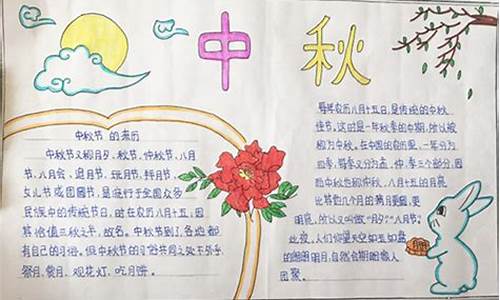 中秋
中秋节的来历
中秋节又称月夕，秋节，仲秋节，八月
节，八月会，追月节，玩月节，拜月节，
女儿节或团圆节，是流行于全国众多
民族中的传统节日，时在农历八月十五，因
其恰值三秋之半，故名。中秋节到了，各地都
有自己的习俗。但中秋节的习俗共同之处不外乎，
祭月，赏月，观花灯，吃月饼。
每年农历八月十五日，是传统的中秋
佳节。这时是一年秋季的中期，所以被
称为中秋。在中国的农历里，一年分为
四季，每季又分为孟，仲，季三个部分，因
而中秋也称仲秋。八月十五的月亮
比其他几个月的满月更圆，更
明亮，所以又叫做"月夕""八月节"。
此夜，人们仰望天空如玉如盘
的朗朗明月，自然会期盼家人
团聚。